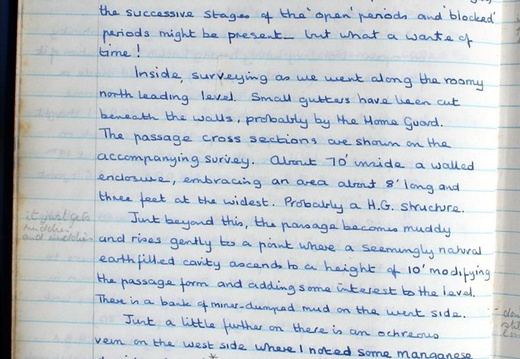 the successive stages of the 'open' periods and 'blocked'
periods might be present – but what a waste of
time!
Inside, surveying as we went along the roomy
north leading level. Small gutters have been cut
beneath the walls, probably by the Home Guard.
The passage cross sections are shown on the
accompanying survey. About 70' inside a walled
enclosure, embracing an area about 8' long and
three feet at the widest. Probably a H.G. structure.
Just beyond this, the passage becomes muddy
and rises gently to a point where a seemingly natural
earth filled cavity ascends to a height of 10' modifying
the passage form and adding some interest to the level.
There is a bank of miner-dumped mud on the west side.
Just a little further on there is an ochreous
vein on the west side where I noted some manganese
it just gets
muddier
and muddier